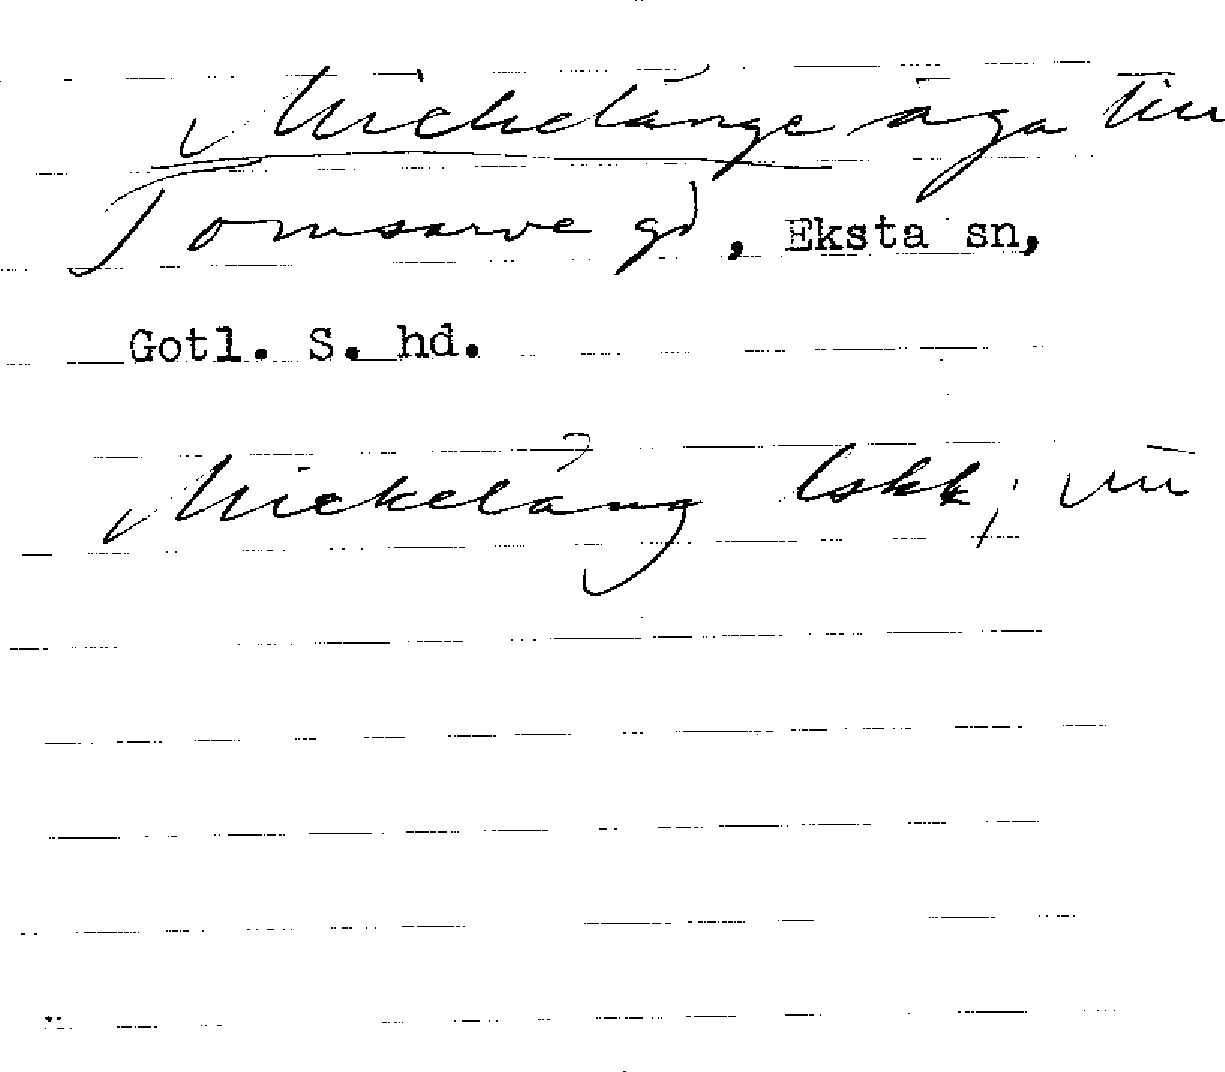 Mickelänge äga till
Tomsarve gd, Eksta sn,
Gotl. S. hd.
Mickeläng Iskk;